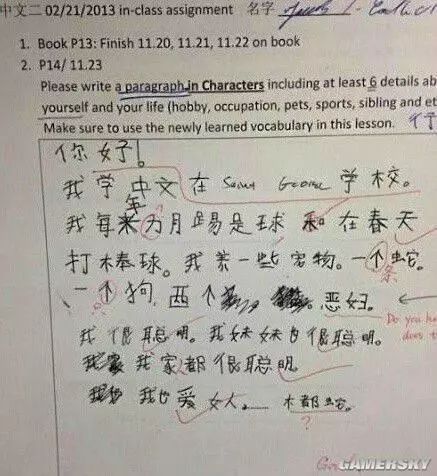 中文二 02/21/2013 in-class assignment 名字
1. Book P13: Finish 11.20, 11.21, 11.22 on book
2. P14/ 11.23
Please write a paragraph in Characters including at least 6 details ab
yourself and your life (hobby, occupation, pets, sports, sibling and et
Make sure to use the newly learned vocabulary in this lesson.
你好!
我学中文在 Saint George 学校。
我每年 月踢足球和在春天
打棒球。我养一些宠物。一个蛇。
条
一个狗,西个 恶妇。
Do you ha
does t
我很聪明。我妹妹也很聪明。
我家都很聪明。
我也爱女人。 木都蛇。
?
GAMERSKY